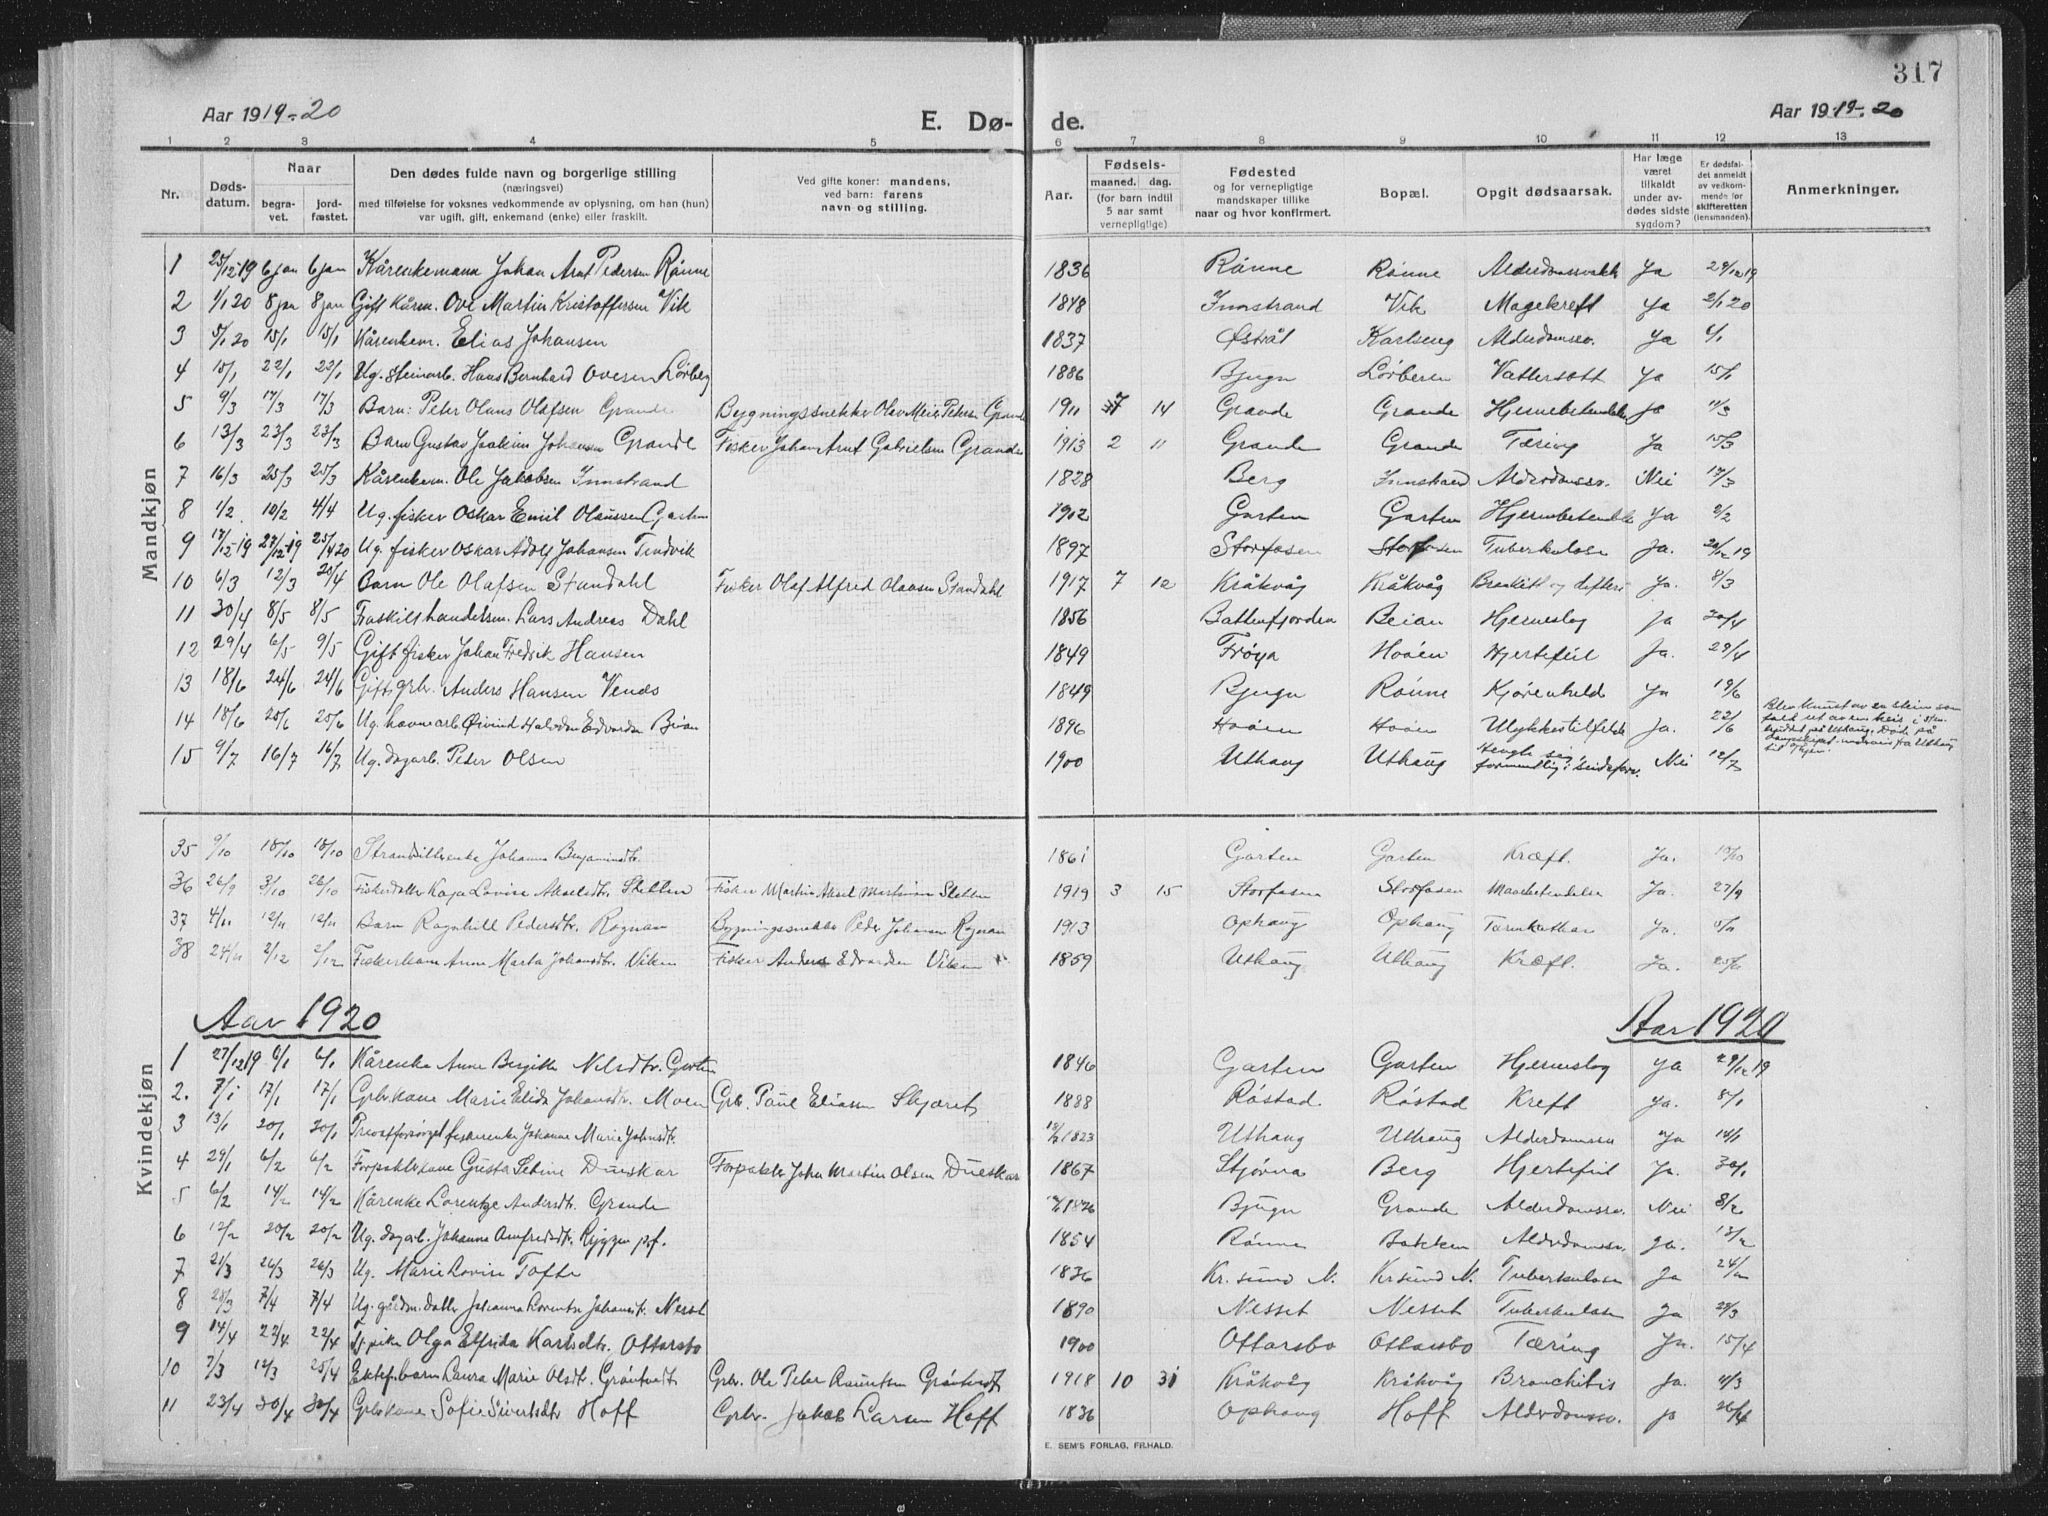 317
Aar 1919-20 E. Dø- de. Aar 1919-20
1 2 3 4 5 6 7 8 9 10 11 12 13
Nr. Døds-datum. Naar begra-vet. jord-fæstet. Den dødes fulde navn og borgerlige stilling (næringsvei) med tilføielse for voksnes vedkommende av oplysning, om han (hun) var ugift, gift, enkemand (enke) eller fraskilt. Ved gifte koner: mandens, ved barn: farens navn og stilling. Aar. Fødsels- maaned. dag. (for barn indtil 5 aar samt vernepligtige) Fødested og for vernepligtige mandskaper tillike naar og hvor konfirmert. Bopæl. Opgit dødsaarsak. Har læge været tilkaldt under av-dødes sidste sygdom? Er dødsfal-det anmeldt av vedkom-mende for skifteretten (lensmanden). Anmerkninger.
Mandkjøn
1 25/12-19 6 jan 6 jan Kårenkemann Johan Arnt Pedersen Rønne 1836 Rønne Rønne Alderdomssvakh. Ja 29/12 19
2 1/1 20 8 jan 8 jan Gift kårm. Ove Martin Kristoffersen Vik 1848 Innstrand Vik Magekreft Ja 2/1 20
3 5/1 20 15/1 15/1 Kårenkem. Elias Johansen 1837 Østrål Karlseng Alderdomssv. Ja 6/1
4 15/1 22/1 22/1 Ug. steinarb. Hans Bernhard Ovesen Lörberg 1886 Bjugn Lörberen Vattersott Ja 15/1
5 9/3 17/3 17/3 Barn: Peter Olaus Olafsen Grande Bygningssnekker Olav Meier Petersen Grande 1911 7 14 Grande Grande Hjernebetendelse Ja 11/3
6 13/3 23/3 23/3 Barn Gustav Joakim Johansen Grande Fisker Johan Arnt Gabrielsen Grande 1913 2 11 Grande Grande Tæring Ja 15/3
7 16/3 25/3 25/3 Kårenkem. Ole Jakobsen Innstrand 1828 Berg Innstrand Alderdomssv. Nei 17/3
8 1/2 10/2 4/4 Ug. fisker Oskar Emil Olaussen Garten 1912 Garten Garten Hjernebetendelse Ja 2/2
9 17/12-19 27/12-19 25/4 20 Ug. fisker Oskar Adolf Johansen Tindvik 1897 Storfosen Storfosen Tuberkulose Ja. 20/12 19
10 6/3 12/3 20/4 Barn Ole Olafsen Standahl Fisker Olaf Alfred Olausen Standahl 1917 7 12 Kråkvåg Kråkvåg Bronkitt og difteri Ja. 8/3
11 30/4 8/5 8/5 Fraskilt handelsm. Lars Andreas Dahl 1856 Battenfjorden Beian Hjerneslag Ja 30/4
12 29/4 6/5 9/5 Gift fisker Johan Fredrik Hansen 1849 Frøya Hoöen Hjertefeil Ja. 29/4
13 18/6 24/6 24/6 Gift grb. Anders Hansen Venås 1849 Bjugn Rönne Kjørenheld Ja 19/6
14 18/6 25/6 25/6 Ug. havnearb. Øivind Halvdan Edvardsen Beian 1896 Hoöen Hoöen Ulykkestilfelde Ja. 22/6 Blev knust av en stein som
15 9/7 16/7 16/7 Ug. dagarb. Peter Olsen 1900 Uthaug Uthaug Hengte sig Nei 12/7
35 9/10 18/10 18/10 Strandsitterenke Johanna Benjaminsdtr. 1861 Garten Garten Kræft. Ja. 10/10
36 26/9 3/10 26/10 Fiskerdatter Kaja Lovise Akselsdtr. Sletten Fisker Martin Aksel Martinsen Sletten 1919 3 15 Storfosen Storfosen Mavebetendelse Ja. 27/9
37 4/11 12/11 12/11 Barn Ragnhill Pedersdtr. Rognan Bygningssnekker Peder Johansen Rognan 1913 Ophaug Ophaug Tarmkatthar Ja. 5/11
38 24/11 2/12 2/12 Fiskerkone Anne Marta Johansdtr. Viken Fisker Anders Edvardsen Viken 1859 Uthaug Uthaug Kræft. Ja. 25/11
Aar 1920 Aar 1920
Kvindekjøn
1 27/12 19 6/1 6/1 Kårenke Anne Bergitte Nilsdtr. Garten 1846 Garten Garten Hjerneslag Ja 29/12 19
2. 7/1 17/1 17/1 Grbr.kone Marie Elida Johansdtr. Moen Grbr. Paul Eliassen Skjæret 1888 Röstad Röstad Kreft Ja. 8/1
3 13/1 20/1 20/1 Privatforsørget fiskerenke Johanna Marie Johnsdtr. 1823 Uthaug Uthaug Alderdomssv Ja 14/1
4 29/1 6/2 6/2 Forpakterkone Gusta Sebine Dueskar Forpakter John Martin Olsen Dueskar 1867 Stjørna Berg Hjertefeil Ja. 30/1
5 6/2 14/2 14/2 Kårenke Lorentze Andersdtr. Grande 1826 Bjugn Grande Alderdomssv. Nei 8/2
6 12/2 20/2 20/2 Ug. dagarb. Johanna Arnfredsdtr. Ryggen pf. 1854 Rönne Bakken Alderdomssv. Ja. 13/2
7 21/3 26/3 26/3 Ug. Marie Lovise Tofte 1836 Kr. sund N. Kr sund N. Tuberkulose Ja 24/
8 28/3 7/4 7/4 Ug. gårdm. datter Johanna Lorentse Johansdtr. Nesset 1890 Nesset Nesset Tuberkulose Ja 29/3
9 14/4 22/4 22/4 Tj.pike Olga Elfrida Karlsdtr. Ottersbo 1900 Ottarsbo Ottarsbo Tæring Ja. 15/4
10 7/3 12/3 25/4 Ektef. barn Laura Marie Olsdtr. Gröntvedt Grbr. Ole Peter Gröntvedt 1918 10 31 Kråkvåg Kråkvåg Bronchitis Ja. 11/3
11 23/4 30/4 30/4 Grbr.kone Sofie Sivertsdtr Hoff Grbr. Jakob Larsen Hoff 1836 Ophaug Hoff Alderdomssv. Ja 26/4
E. SEM'S FORLAG, FR.HALD.